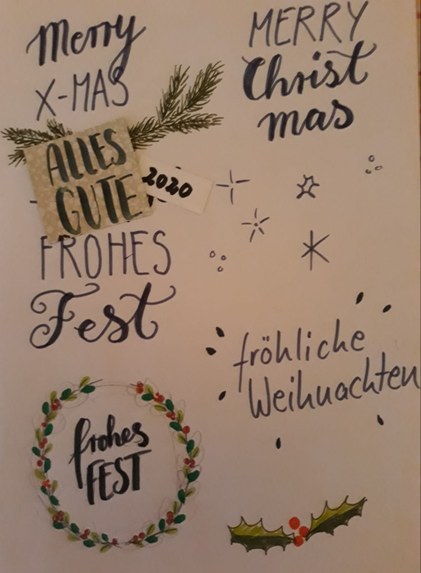 Merry
X-MAS
MERRY
Christ
mas
ALLES
GUTE
2020
FROHES
Fest
fröhliche
Weihnachten
frohes
FEST